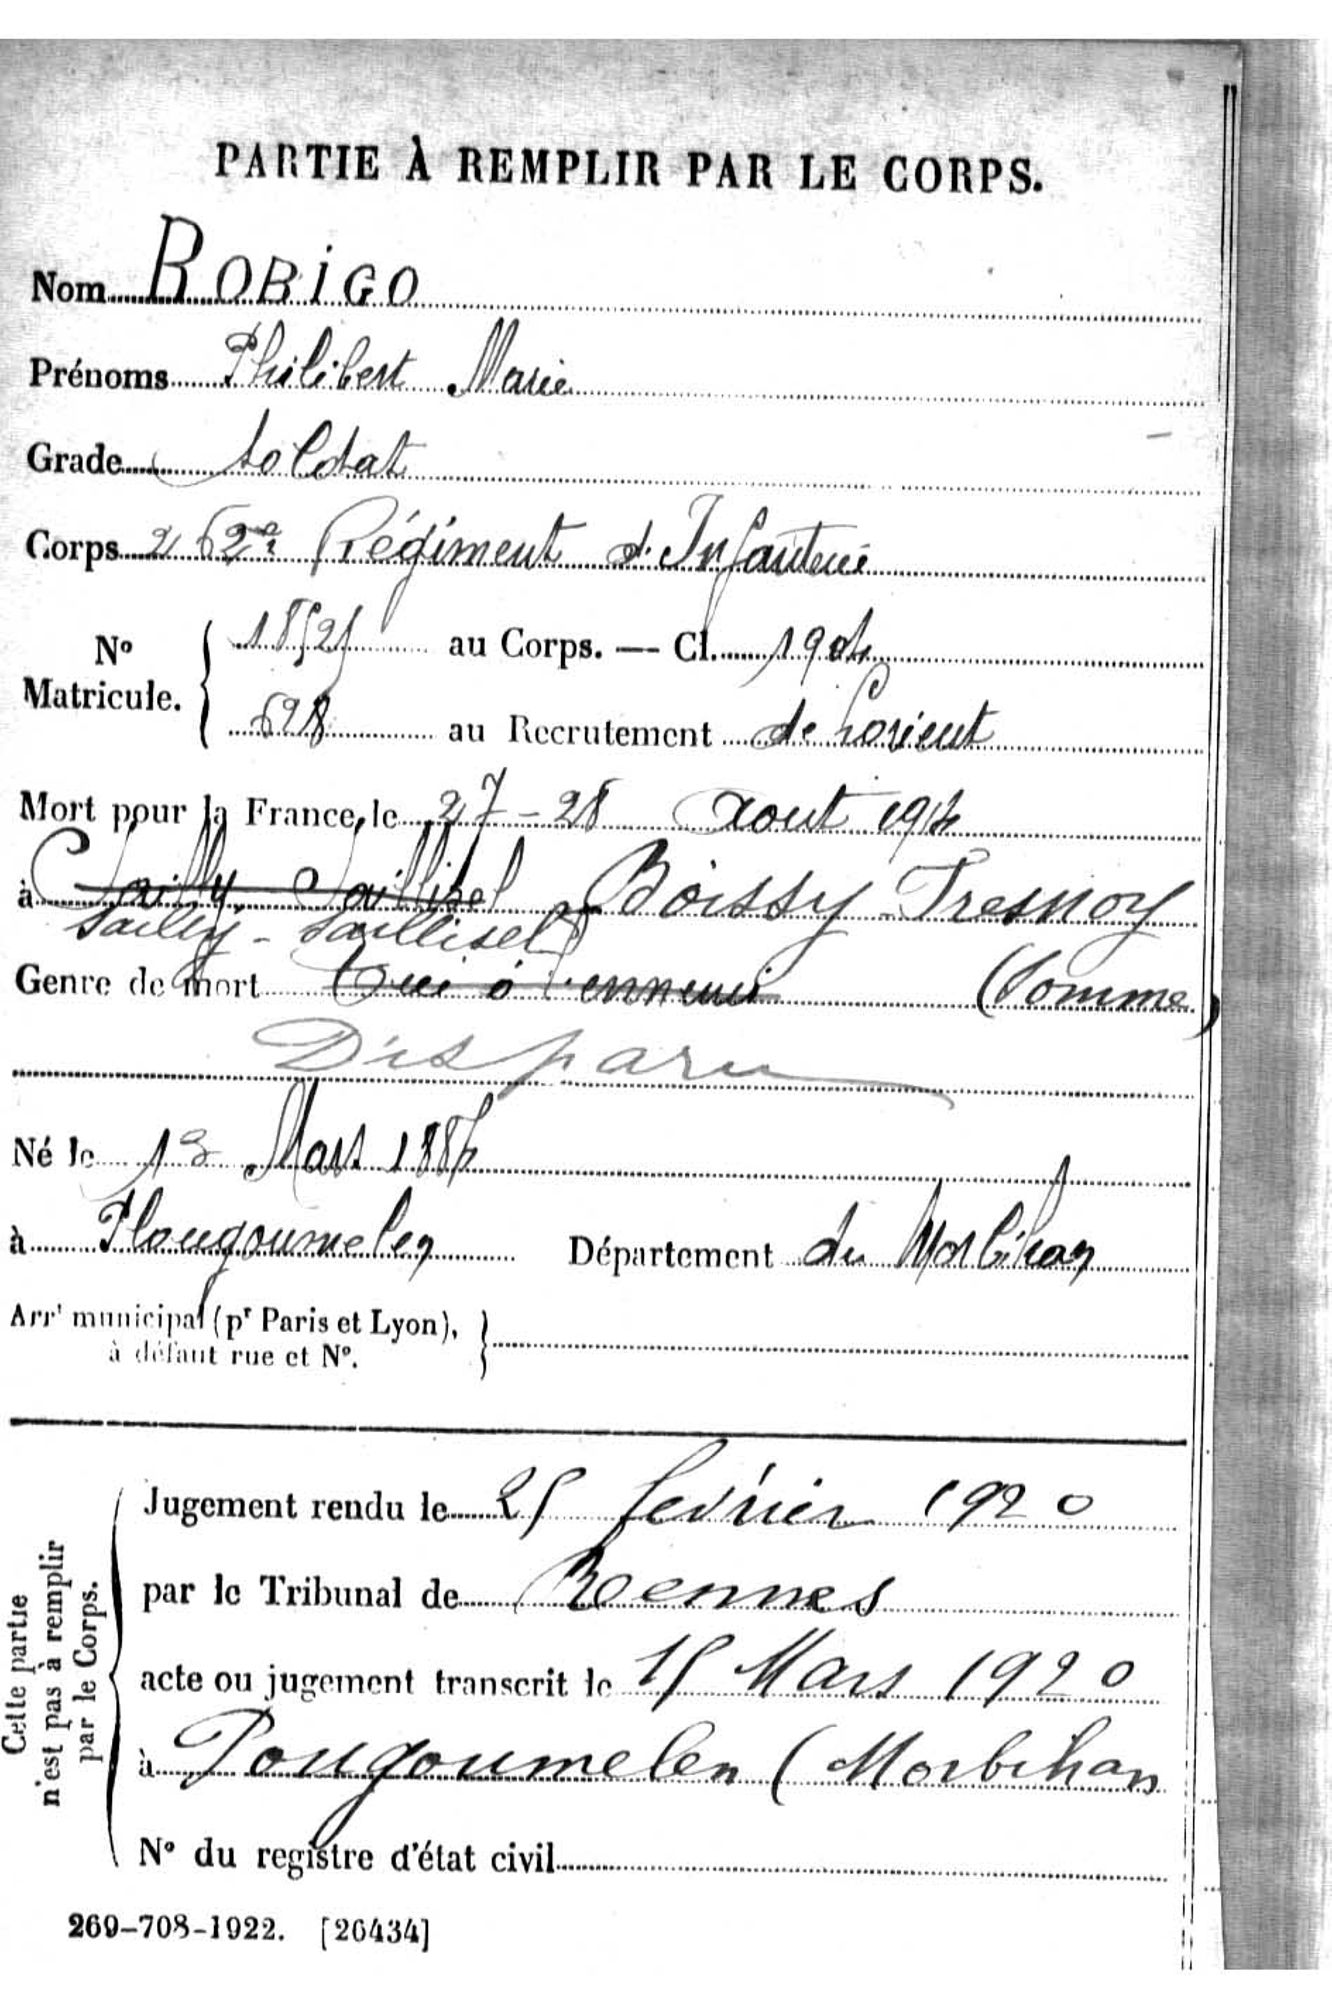 PARTIE À REMPLIR PAR LE CORPS.
Nom ROBIGO
Prénoms Philibert Marie
Grade soldat
Corps 262e Régiment d'Infanterie
No Matricule. { 18521 au Corps. — Cl. 1904
698 au Recrutement de Lorient
Mort pour la France, le 27-28 Aout 1914
à Sailly Saillisel Boissy-Fresnoy
Sailly-Saillisel
Genre de mort Tué à l'ennemi (Somme)
Disparu
Né le 13 Mars 1884
à Plougoumelen Département du Morbihan
Arrt municipal (pr Paris et Lyon), }
à défaut rue et No.
Cette partie n'est pas à remplir par le Corps.
Jugement rendu le 25 février 1920
par le Tribunal de Rennes
acte ou jugement transcrit le 15 Mars 1920
à Pougoumelen (Morbihan
No du registre d'état civil
269-708-1922. [26434]